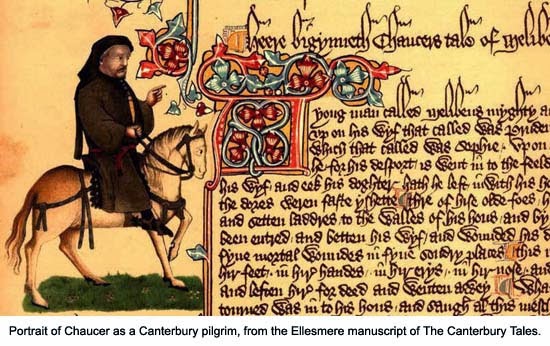 Heere bigynneth Chaucers tale of Melibe
A yong man called Melibeus myghty a
up on his wyf that called was Pruden
which that called was Sophie . Upon
he for his desport is went in to the feeld
his wyf and eek his doghter hath he left in with his h
the dores weren faste yshette thre of hise olde foes h
and setten laddres to the walles of his hous and by
been entred and betten his wyf and wounded his d
fyue mortal woundes in fyue sondry places this i
hir feet . in hir handes . in hir erys . in hir nose . an
and leften hir for deed and wenten awey Wha
torned was in to his hous and saugh al this mesch
Portrait of Chaucer as a Canterbury pilgrim, from the Ellesmere manuscript of The Canterbury Tales.